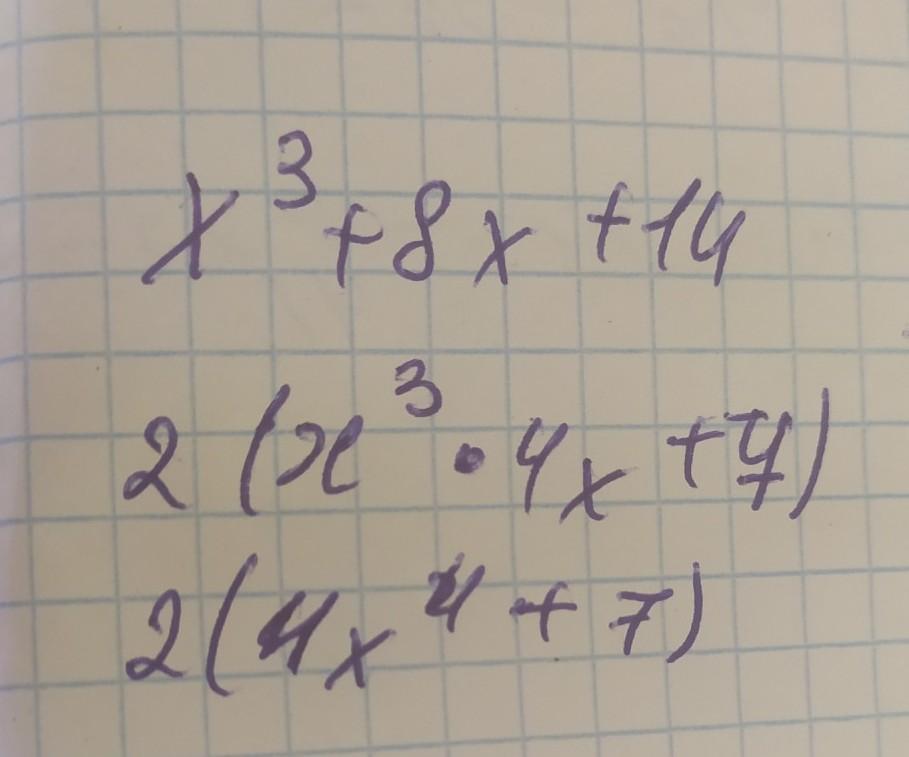 x³+8x+14
2(x³·4x+7)
2(4x⁴+7)